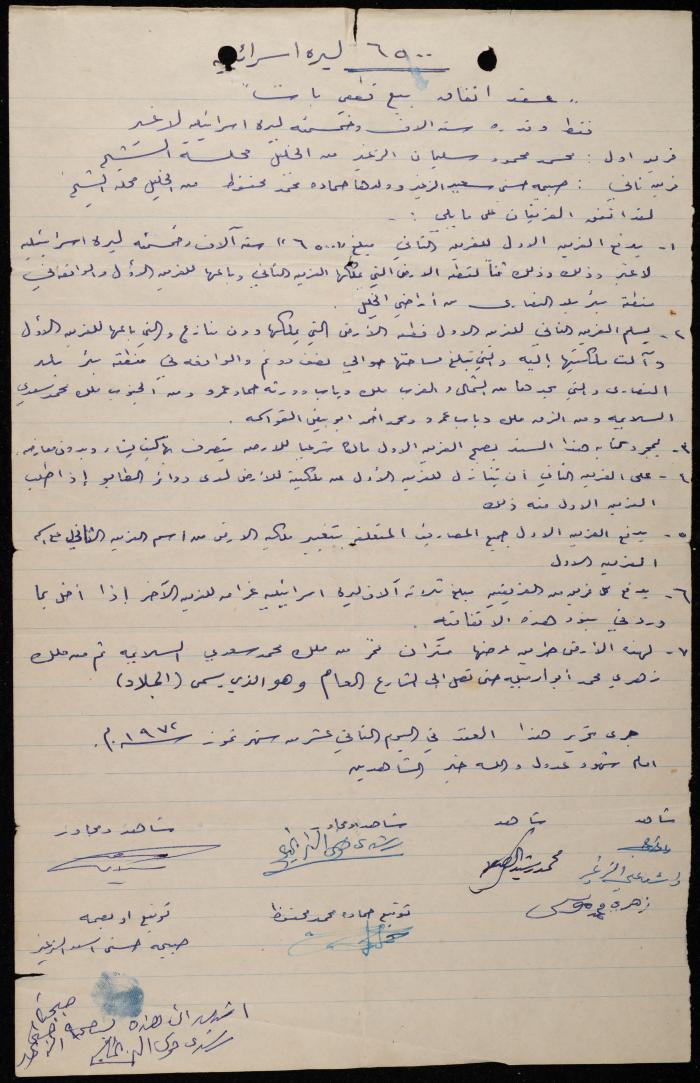 ٦٥٠٠ ليرة اسرائيلية
"عقد اتفاق بيع قطعي بات"
فقط وقدره ستة الاف وخمسمئة ليرة اسرائيلية لا غير
فريق اول : محمد محمود سليمان الزغير من الخليل محلة الشيخ
فريق ثاني : صبحيه حسني سعيد الزغير وولدها حماده محمد محفوظ من الخليل محلة الشيخ
لقد اتفق الفريقان على ما يلي :-
١- يدفع الفريق الاول للفريق الثاني مبلغ "٦٥٠٠" ستة آلاف وخمسمئة ليرة اسرائيلية
لا غير وذلك وذلك ثمناً لقطعة الارض التي يملكها الفريق الثاني وباعها للفريق الأول والواقعة في
منطقة بئر بلد النصارى من أراضي الخليل .
٢- يسلم الفريق الثاني للفريق الاول قطعة الأرض التي يملكها دون منازع والتي باعها للفريق الأول
وآلت ملكيتها إليه والتي تبلغ مساحتها حوالي نصف دونم والواقعة في منطقة بئر بلد
النصارى والتي يحدها من الشمال والغرب ملك دياب وورثة حماد عمرو ومن الجنوب ملك محمد سعدي
السلايمه ومن الشرق ملك دياب عمرو ومحمد أحمد ابو بيض القواسمه .
٣- بمجرد كتابة هذا السند يصبح الفريق الاول مالكا شرعيا للارض يتصرف بها كيف يشاء وبدون معارض
٤- على الفريق الثاني أن يتنازل للفريق الأول عن ملكية للارض لدى دوائر الطابو إذا طلب
الفريق الاول منه ذلك
٥- يدفع الفريق الاول جميع المصاريف المتعلقة بتغيير ملكية الارض من اسم الفريق الثاني الى اسم
الفريق الاول
٦- يدفع كل فريق من الفريقين مبلغ ثلاثة آلاف ليرة اسرائيلية غرامة للفريق الآخر إذا أخل بما
ورد في بنود هذه الاتفاقية .
٧- لهذه الأرض طريق عرضها متران تمر من ملك محمد سعدي السلايمه ثم من ملك
زهري محمد أبو ارميله حتى تصل الى الشارع العام وهو الذي يسمى (الجلاد)
جرى تحرير هذا العقد في اليوم الثاني عشر من شهر تموز سنة ١٩٧٢ م.
امام شهود عدول والله خير الشاهدين
شاهد
شاهد
شاهد ومجاور
شاهد ومجاور
محمد رشيد
توقيع حماده محمد محفوظ
توقيع او بصمه
صبحيه حسني سعيد الزغير
اشهد ان هذه بصمة